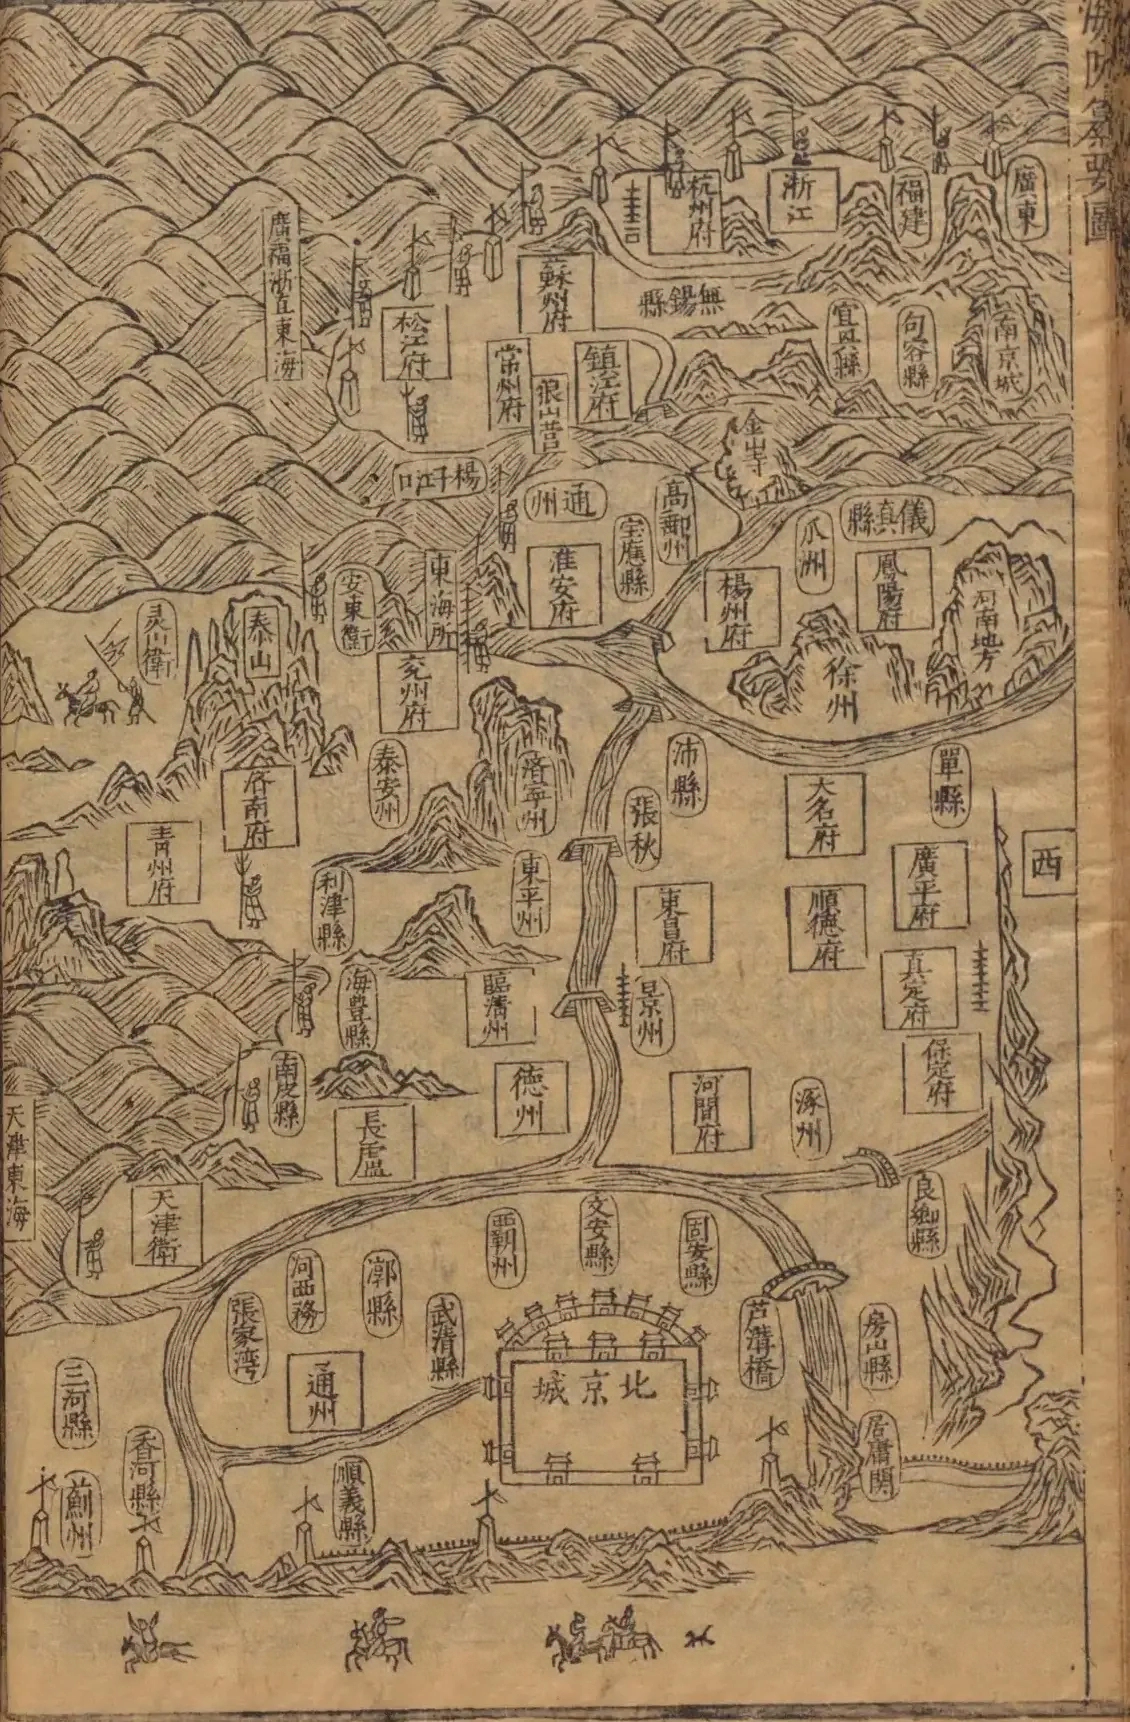 廣東
福建
浙江
杭州府
蘇州府
廣福浙直東海
松江府
無錫縣
宜興縣
句容縣
南京城
常州府
狼山營
鎮江府
金山寺
楊子江口
通州
高郵州
宝應縣
瓜洲
儀真縣
淮安府
楊州府
鳳陽府
河南地方
徐州
東海所
安東衛
泰山
灵山衛
兖州府
單縣
沛縣
大名府
済寧州
泰安州
済南府
張秋
青州府
西
廣平府
順德府
東昌府
東平州
利津縣
真定府
景州
臨清州
海豊縣
保定府
涿州
河間府
德州
南皮縣
長盧
天津東海
天津衛
良鄉縣
固安縣
文安縣
霸州
漷縣
河西務
張家湾
武清縣
芦溝橋
房山縣
北京城
通州
三河縣
香河縣
薊州
順義縣
居庸関